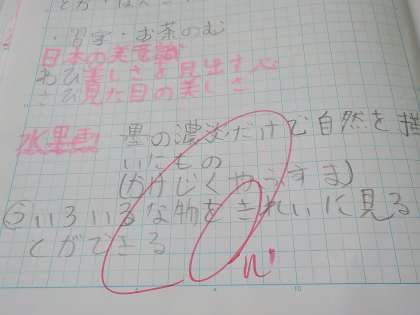 ・習字・お茶のむ
日本の美意識
わび美しさを見出す心
さび見た目の美しさ
水墨画 墨の濃淡だけで自然を描
いたもの
(かけじくやふすま)
いろいろな物をきれいに見る
とができる